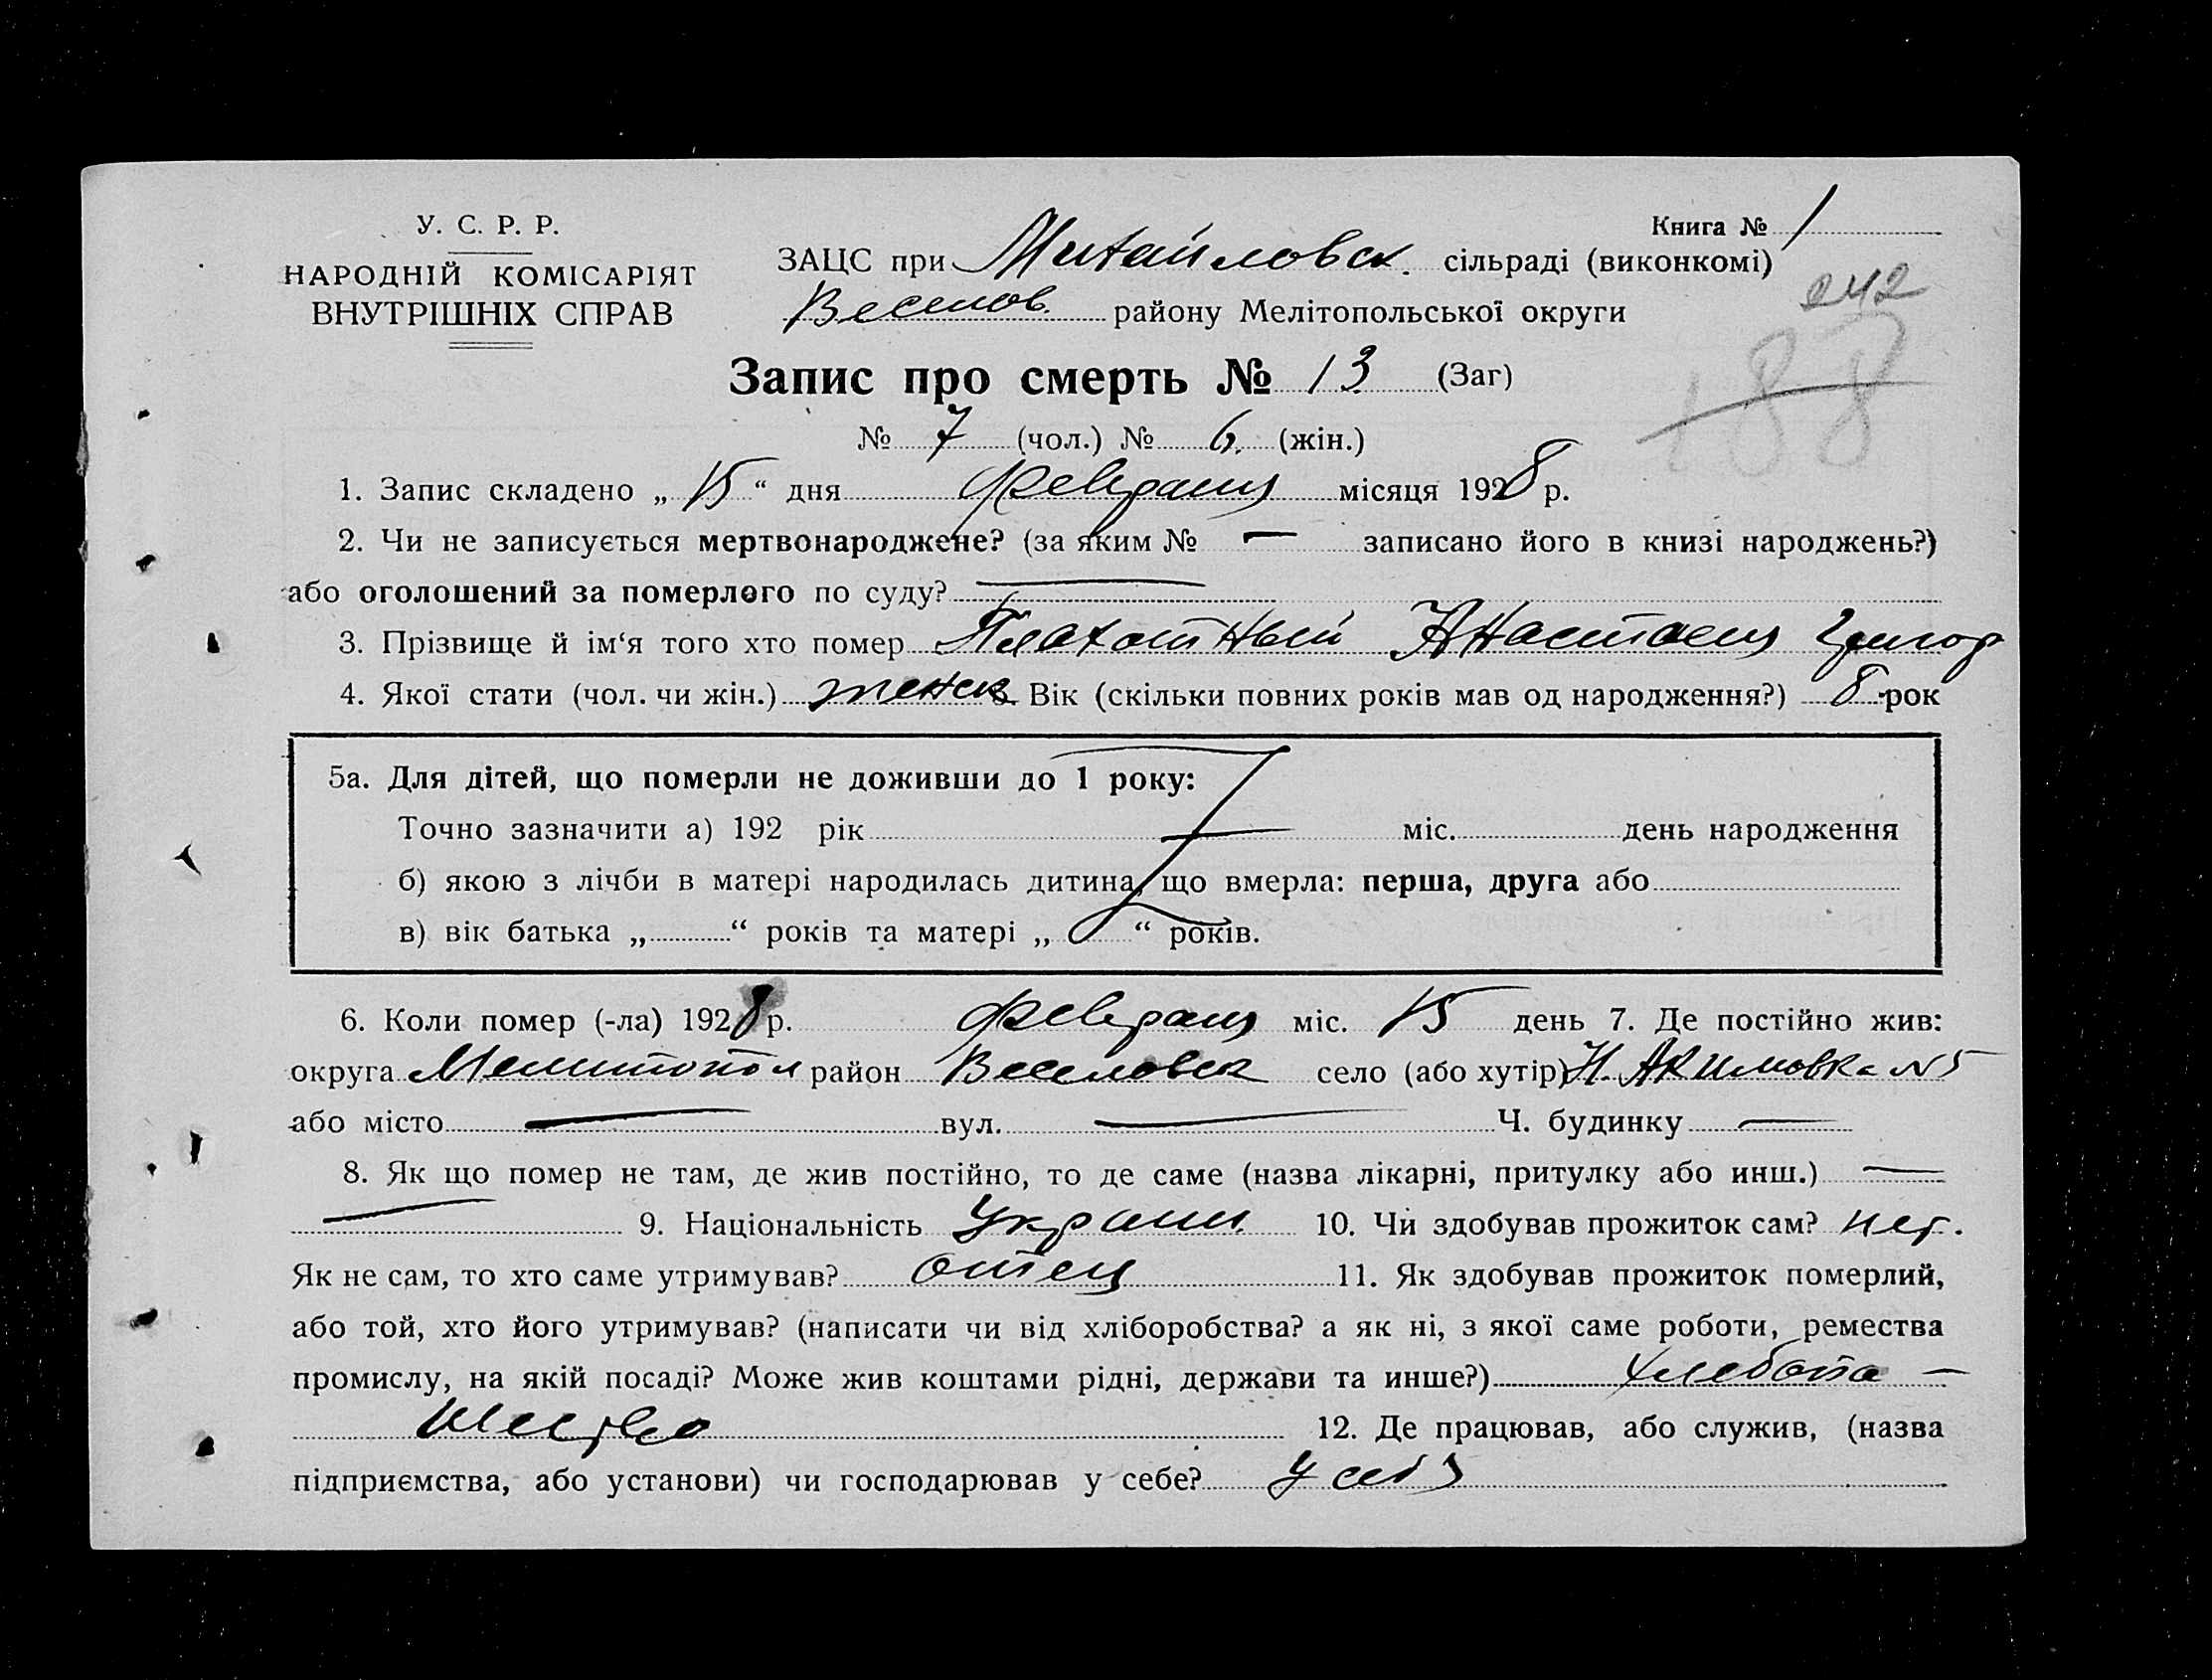 У. С. Р. Р.
НАРОДНІЙ КОМІСАРІЯТ
ВНУТРІШНІХ СПРАВ
Книга № 1
ЗАЦС при Михайловск. сільраді (виконкомі)
242
Веселов. району Мелітопольської округи
188
Запис про смерть № 13 (Заг)
№ 7 (чол.) № 6. (жін.)
1. Запис складено „ 15 “ дня февраля місяця 1928 р.
2. Чи не записується мертвонароджене? (за яким № — записано його в книзі народжень?)
або оголошений за померлого по суду? —
3. Прізвище й ім‘я того хто помер Плахотный Анастасия Григор
4. Якої стати (чол. чи жін.) женск 5. Вік (скільки повних років мав од народження?) 8 рок
5а. Для дітей, що померли не доживши до 1 року:
Точно зазначити а) 192 рік міс. день народження
б) якою з лічби в матері народилась дитина, що вмерла: перша, друга або
в) вік батька „ “ років та матері „ “ років.
6. Коли помер (-ла) 1928 р. февраля міс. 15 день 7. Де постійно жив:
округа Мелитопол район Веселовск село (або хутір) Н. Акимовка N5
або місто — вул. — Ч. будинку —
8. Як що помер не там, де жив постійно, то де саме (назва лікарні, притулку або инш.) —
— 9. Національність Украин. 10. Чи здобував прожиток сам? нет.
Як не сам, то хто саме утримував? отец 11. Як здобував прожиток померлий,
або той, хто його утримував? (написати чи від хліборобства? а як ні, з якої саме роботи, ремества
промислу, на якій посаді? Може жив коштами рідні, держави та инше?) хлебопа-
шество 12. Де працював, або служив, (назва
підприємства, або установи) чи господарював у себе? у себя